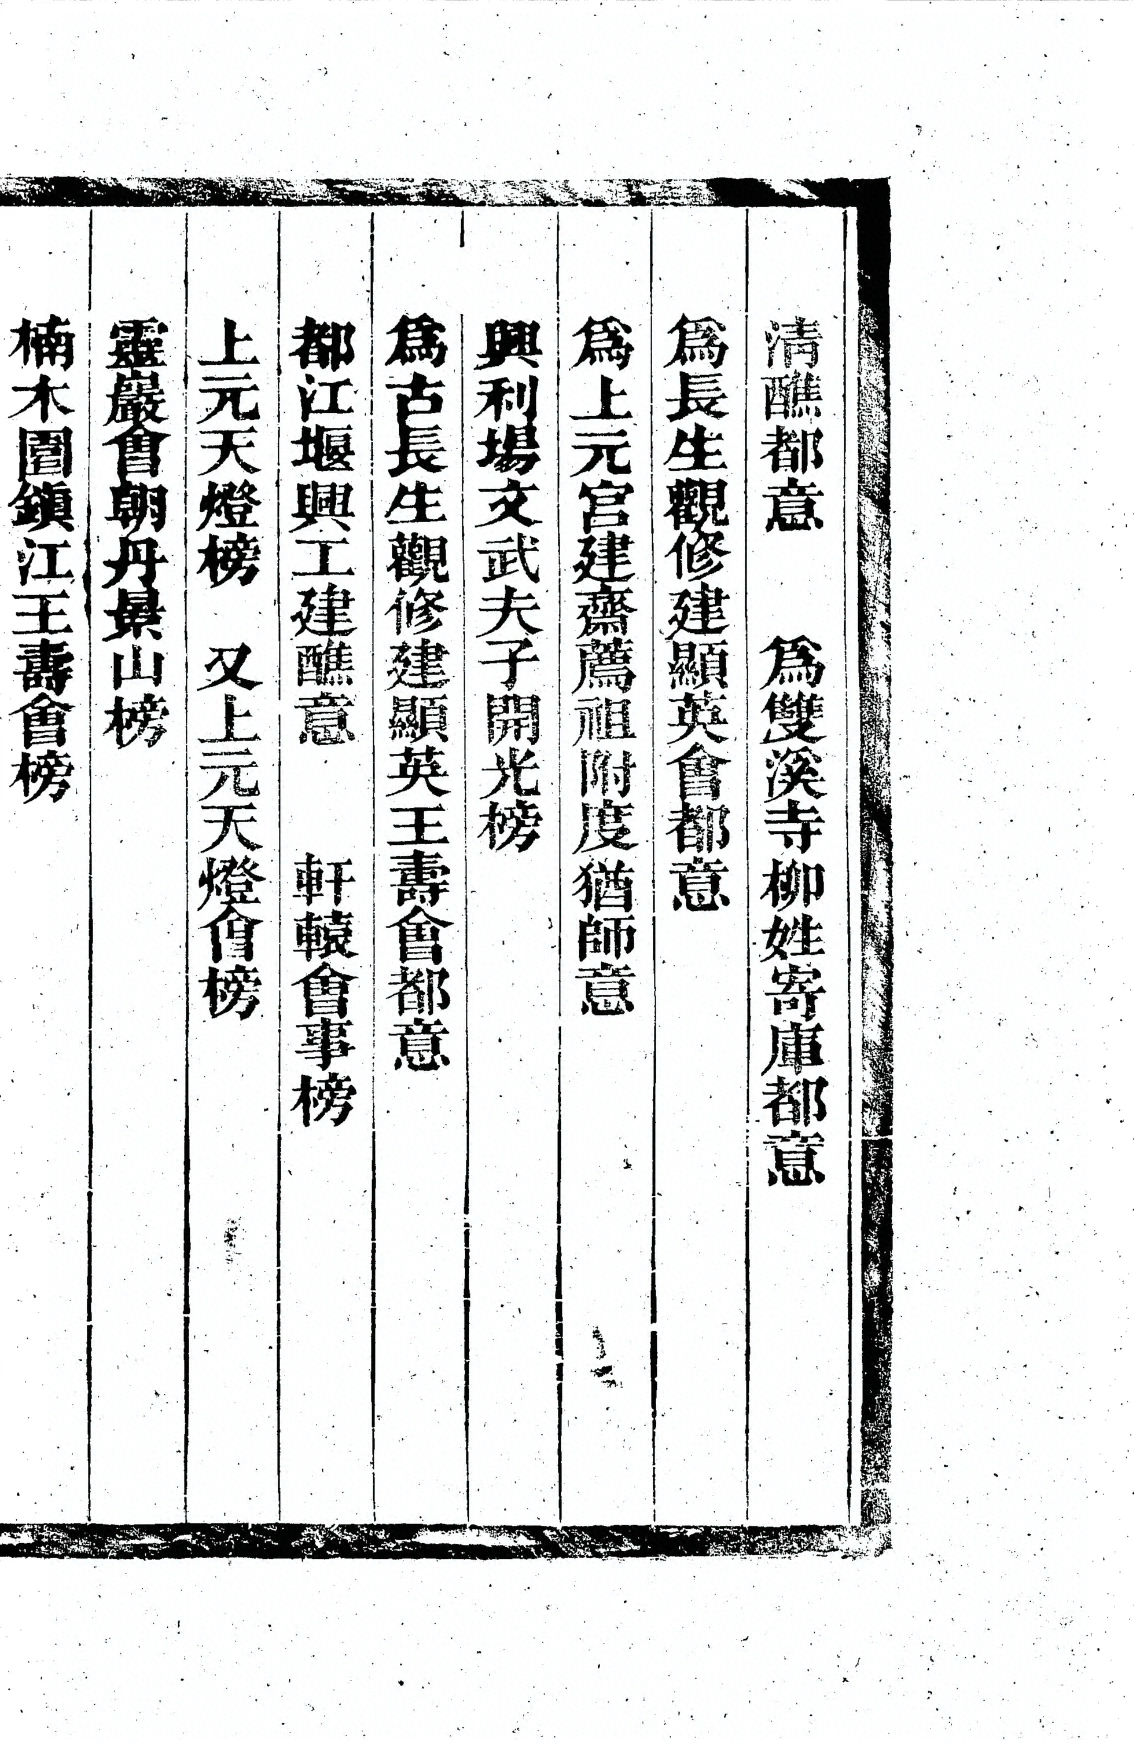 清醮都意　爲雙溪寺柳姓寄庫都意
爲長生觀修建顯英會都意
爲上元宮建齋薦祖附度猶師意
興利場文武夫子開光榜
爲古長生觀修建顯英王壽會都意
都江堰興工建醮意　軒轅會事榜
上元天燈榜　又上元天燈會榜
靈巖會朝丹景山榜
楠木園鎭江王壽會榜